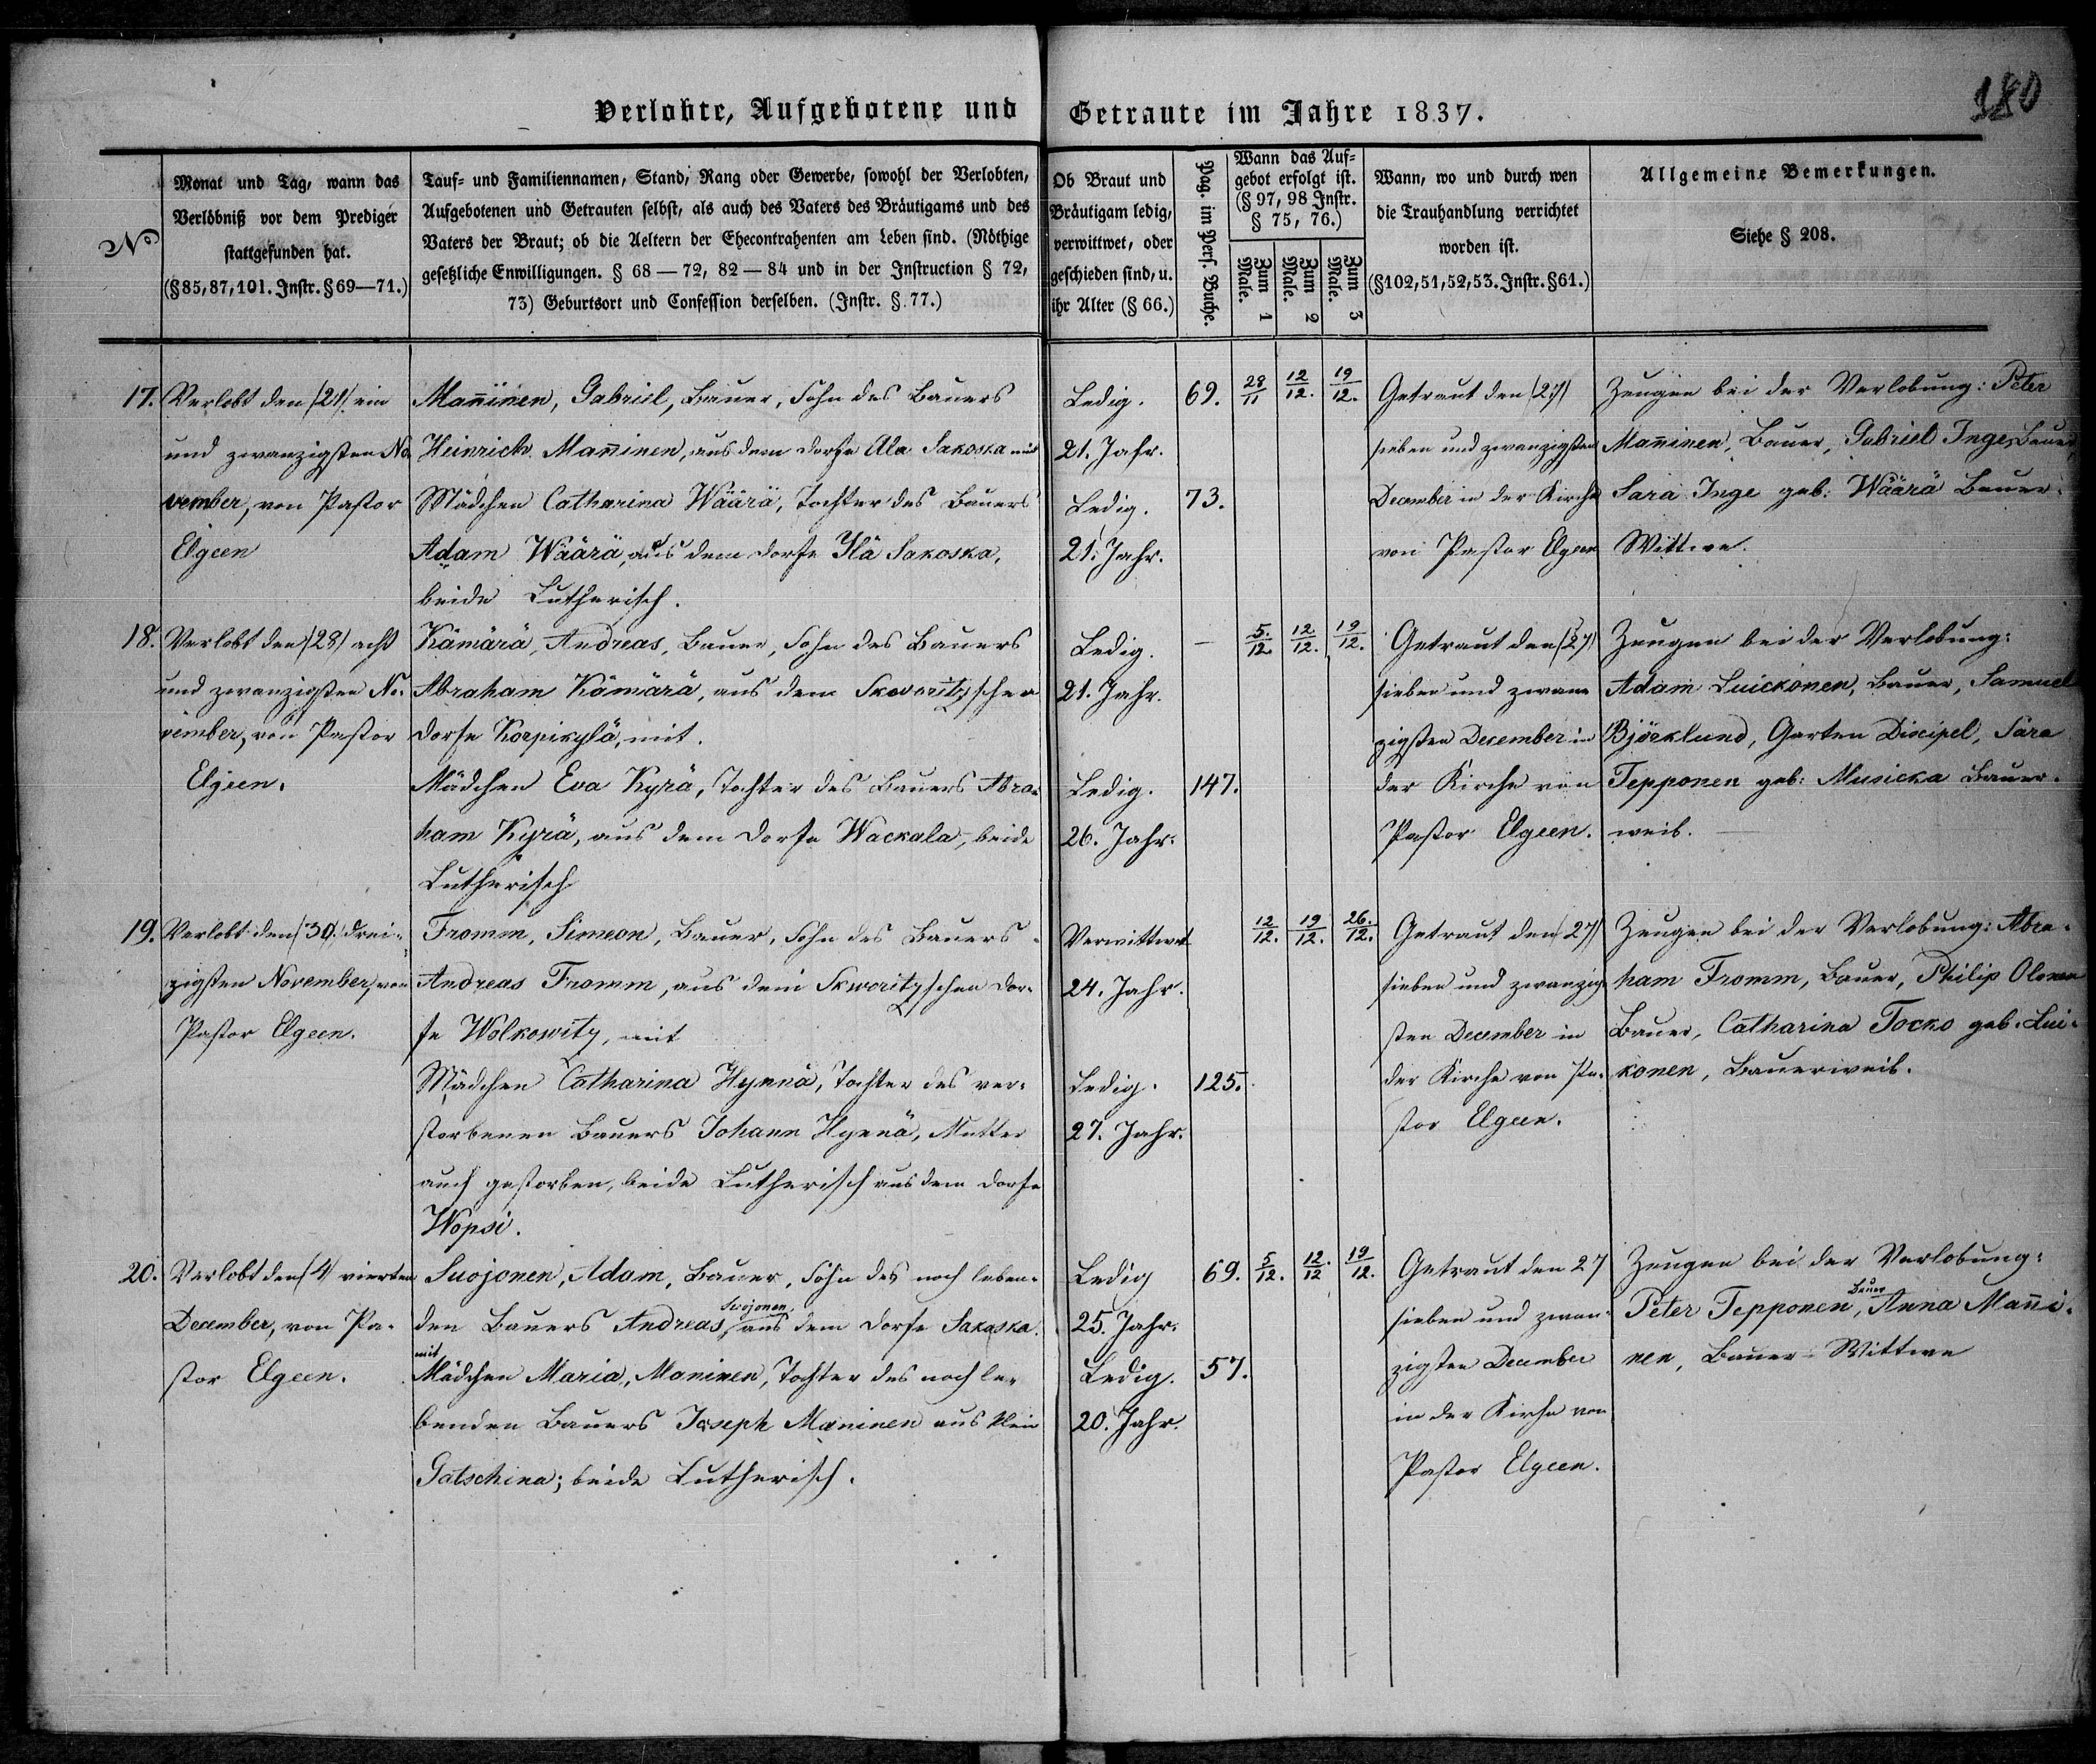 180
Verlobte, Aufgebotene und Getraute im Jahre 1837.
No
Monat und Tag, wann das
Verlöbniß vor dem Prediger
stattgefunden hat.
(§85,87,101. Instr. §69—71.)
Tauf- und Familiennamen, Stand, Rang oder Gewerbe, sowohl der Verlobten,
Aufgebotenen und Getrauten selbst, als auch des Vaters des Bräutigams und des
Vaters der Braut; ob die Aeltern der Ehecontrahenten am Leben sind. (Nöthige
gesetzliche Enwilligungen. § 68—72, 82—84 und in der Instruction § 72,
73) Geburtsort und Confession derselben. (Instr. §.77.)
Ob Braut und
Bräutigam ledig,
verwittwet, oder
geschieden sind, u.
ihr Alter (§ 66.)
Pag. im Pers. Buche.
Wann das Auf=
gebot erfolgt ist.
(§ 97, 98 Instr.
§ 75, 76.)
Zum 1 Male.
Zum 2 Male.
Zum 3 Male.
Wann, wo und durch wen
die Trauhandlung verrichtet
worden ist.
(§102,51,52,53. Instr. §61.)
Allgemeine Bemerkungen.
Siehe § 208.
17.
Verlobt den /21/ ein
und zwanzigsten No
vember, von Pastor
Elgeen
Mañinen, Gabriel, Bauer, Sohn des Bauers
Heinrich Mañinen, aus dem Dorfe Ala Sakoska mit
Mädchen Catharina Wäärä, Tochter des Bauers
Adam Wäärä, aus dem Dorfe Ylä Sakoska,
beide Lutherisch.
Ledig.
21. Jahr.
Ledig.
21. Jahr.
69.
73.
28/11
12/12.
19/12.
Getraut den /27/
sieben und zwanzigsten
December in der Kirche
von Pastor Elgeen
Zeugen bei der Verlobung: Peter
Mañinen, Bauer, Gabriel Inge, Bauer,
Sara Inge geb: Wäärä Bauer-
Wittwe.
18.
Verlobt den /28/ acht
und zwanzigsten No-
vember, von Pastor
Elgeen.
Kämärä, Andreas, Bauer, Sohn des Bauers
Abraham Kämärä, aus dem Skworitzschen
Dorfe Korpikylä, mit
Mädchen Eva Kyrä, Tochter des Bauers Abra-
ham Kyrä, aus dem Dorfe Wackala, beide
Lutherisch
Ledig.
21. Jahr.
Ledig.
26. Jahr.
—
147.
5./12.
12./12.
19/12.
Getraut den /27/
sieben und zwan
zigsten December in
der Kirche von
Pastor Elgeen.
Zeugen bei der Verlobung:
Adam Luickonen, Bauer, Samuel
Björklund, Garten Discipel, Sara
Tepponen geb: Musicka Bauer-
weib.
19.
Verlobt den /30./ drei-
zigsten November, von
Pastor Elgeen.
Fromm, Simeon, Bauer, Sohn des Bauers
Andreas Fromm, aus dem Skworitzschen Dor-
fe Wolkowitz, mit
Mädchen Catharina Hynnä, Tochter des ver-
storbenen Bauers Johann Hynnä, Mutter
auch gestorben, beide Lutherisch aus dem Dorfe
Wopsi.
Verwittwet
24. Jahr.
Ledig.
27. Jahr.
125.
12/12.
19/12.
26./12.
Getraut den 27/
sieben und zwanzig
sten December in
der Kirche von Pa-
stor Elgeen.
Zeugen bei der Verlobung: Abra-
ham Fromm, Bauer, Philip Olonen
Bauer, Catharina Tocko geb. Lui-
konen, Bauerweib.
20.
Verlobt den /4/ vierten
December, von Pa-
stor Elgeen.
Suojonen, Adam, Bauer, Sohn des noch leben-
den Bauers Andreas Suojonen, aus dem Dorfe Sakaska.
mit
Mädchen Maria, Maninen, Tochter des noch le-
benden Bauers Joseph Maninen aus Klein
Gatschina; beide Lutherisch.
Ledig
25. Jahr.
Ledig.
20. Jahr.
69.
57.
5/12.
12./12
19/12.
Getraut den 27
sieben und zwan-
zigsten December
in der Kirche von
Pastor Elgeen.
Zeugen bei der Verlobung:
Peter Tepponen, Bauer Anna Mañi-
nen, Bauer-Wittwe